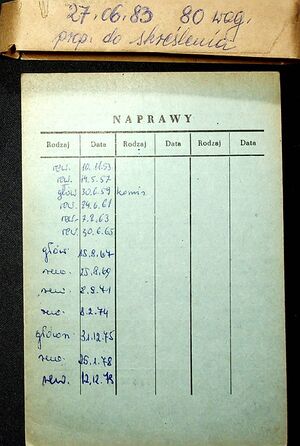 27.06.83 80 wag.
prop. do skreślenia
NAPRAWY
Rodzaj Data Rodzaj Data Rodzaj Data
rew. 10.11.53
rew. 19.5.57
głów 30.6.59 komis.
rew. 24.6.61
rew. 7.2.63
rew. 30.6.65
głów. 15.8.67
rew. 25.8.69
rew. 2.9.71
rew. 8.2.74
główn. 31.12.75
rew. 25.1.78
rew. 12.12.79